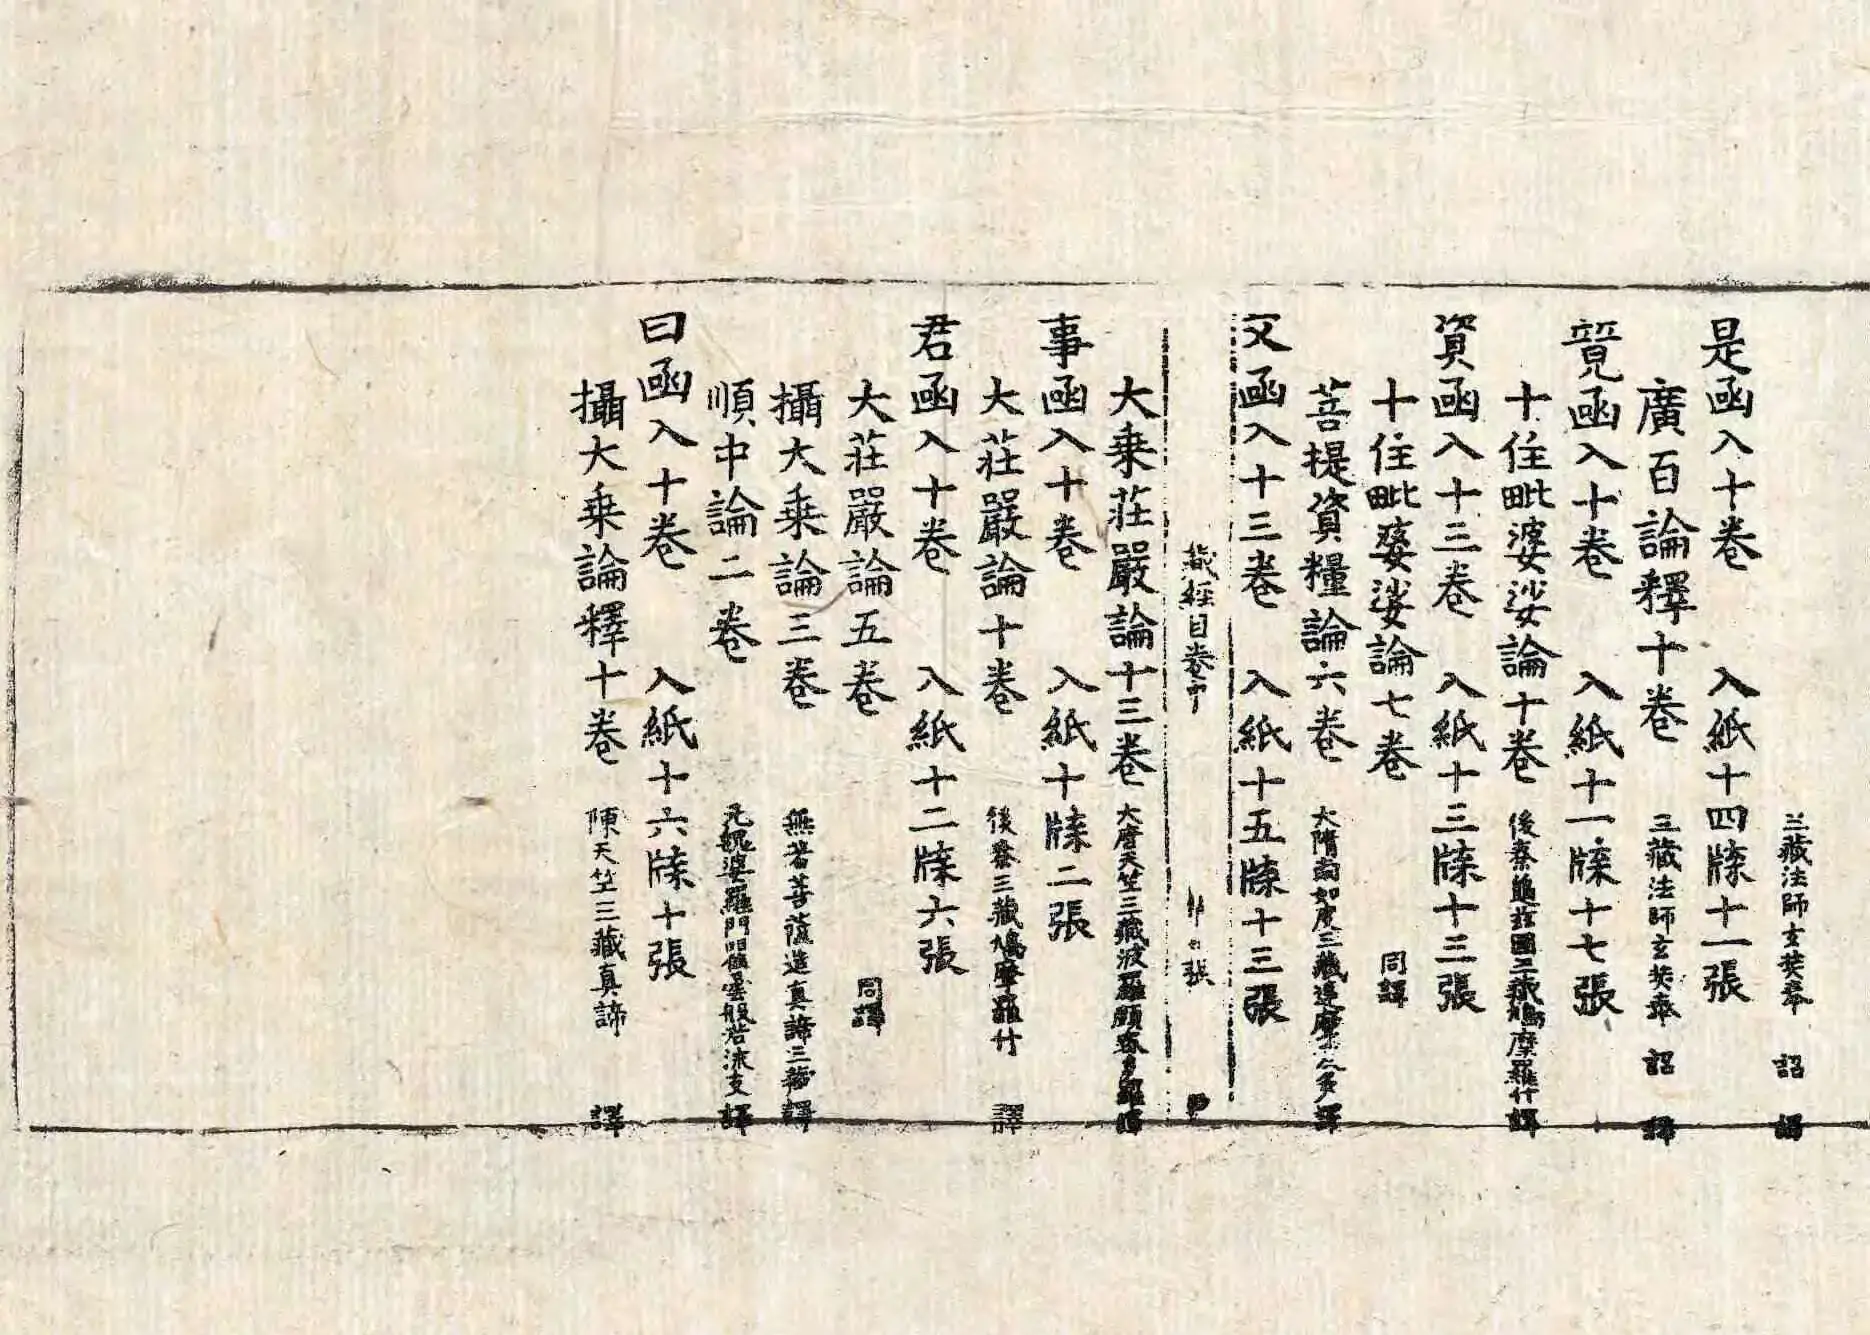 三藏法師玄奘奉 詔 譯
是函入十卷 入紙十四牒十一張
廣百論釋十卷 三藏法師玄奘奉 詔 譯
竸函入十卷 入紙十一牒十七張
十住毗婆娑論十卷 後秦龜茲國三藏鳩摩羅什譯
資函入十三卷 入紙十三牒十三張
十住毗婆娑論七卷 同譯
菩提資糧論六卷 大隋南如度三藏達摩 多譯
文函入十三卷 入紙十五牒十三張
藏經目卷中 張
大乗莊嚴論十三卷 大唐天竺三藏波羅頗 多羅譯
事函入十卷 入紙十牒二張
大莊嚴論十卷 後秦三藏鳩摩羅什 譯
君函入十卷 入紙十二牒六張
大莊嚴論五卷 同譯
攝大乗論三卷 無着菩薩造真諦三藏譯
順中論二卷 元魏婆羅門瞿曇般若流支譯
曰函入十卷 入紙十六牒十張
攝大乗論釋十卷 陳天竺三藏真諦 譯